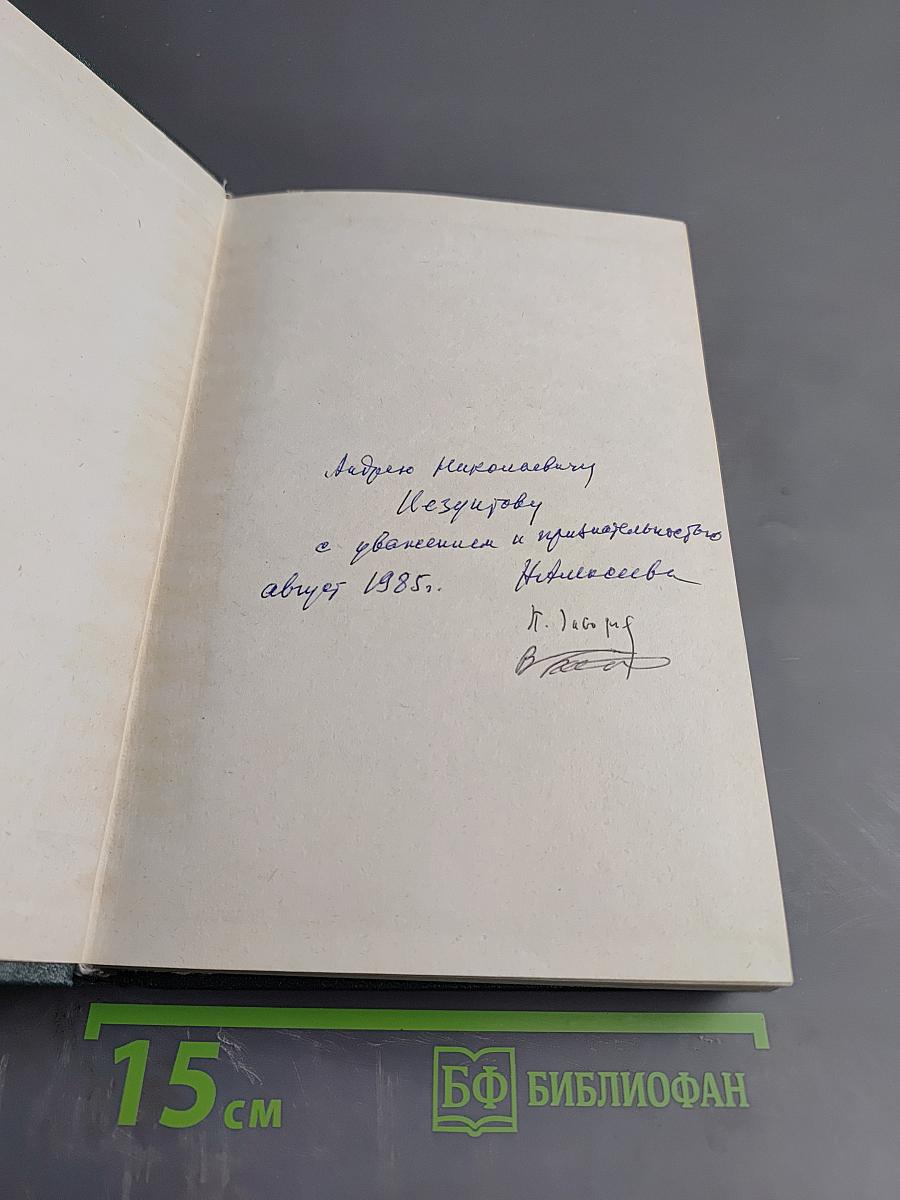 Андрею Николаевичу
Иезуитову
с уважением и признательностью
август 1985г. НАлексеева
15 см
БФ БИБЛИОФАН